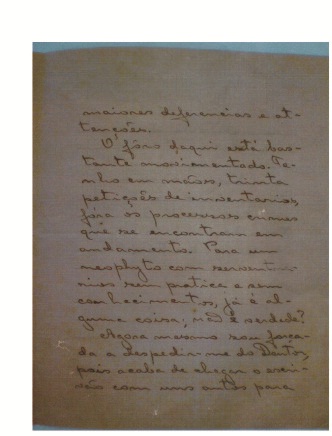 maiores deferencias e at-
tenções.
O fôro daqui está bas-
tante movimentado. Te-
nho em mãos, trinta
petições de inventarios,
fóra os processos crimes
que se encontram em
andamento. Para um
neophyto com
sem pratica e sem
conhecimentos, já é al-
guma coisa, não é verdade?
Agora mesmo sou força-
da a despedir-me do Dantas,
pois acaba de chegar o escri-
vão com uns autos para